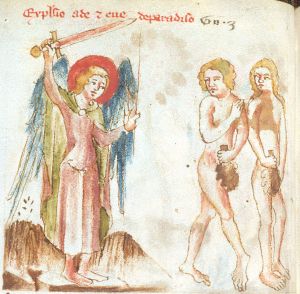 Expulsio ade ⁊ eue de paradiso Gn · 3